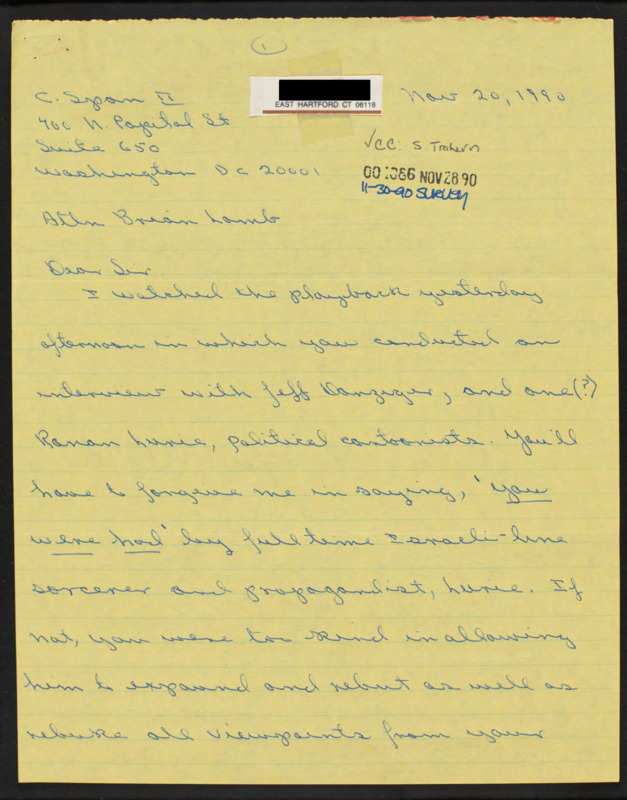 1
EAST HARTFORD CT 06118
C. Span II
Nov 20, 1990
400 N. Capital St
Suite 650
√CC: S. Trahern
Washington DC 20001
001086 NOV 28 90
11-30-90 SURVEY
Attn Brian Lamb
Dear Sir
I watched the playback yesterday
afternoon in which you conducted an
interview with Jeff Danziger, and one(?)
Ranan Lurie, political cartoonists. You'll
have to forgive me in saying, 'you
were had' by full time Israeli-line
sorcerer and propagandist, Lurie. If
not, you were too kind in allowing
him to expound and rebut as well as
rebuke all viewpoints from your